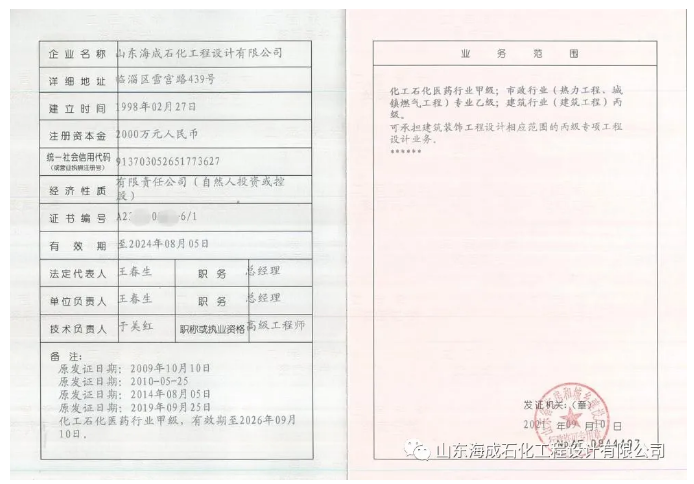 企业名称 山东海成石化工程设计有限公司
详细地址 临淄区雪宫路439号
建立时间 1998年02月27日
注册资本金 2000万元人民币
统一社会信用代码
(或营业执照注册号) 913703052651773627
经济性质 有限责任公司（自然人投资或控
股）
证书编号 A2 6/1
有效期 至2024年08月05日
法定代表人 王春生 职务 总经理
单位负责人 王春生 职务 总经理
技术负责人 于美红 职称或执业资格 高级工程师
备注：
原发证日期：2009年10月10日
原发证日期：2010-05-25
原发证日期：2014年08月05日
原发证日期：2019年09月25日
化工石化医药行业甲级，有效期至2026年09月
10日。
业务范围
化工石化医药行业甲级；市政行业（热力工程、城
镇燃气工程）专业乙级；建筑行业（建筑工程）丙
级。
可承担建筑装饰工程设计相应范围的丙级专项工程
设计业务。
******
发证机关：（章）
2021年09月10日
山东海成石化工程设计有限公司